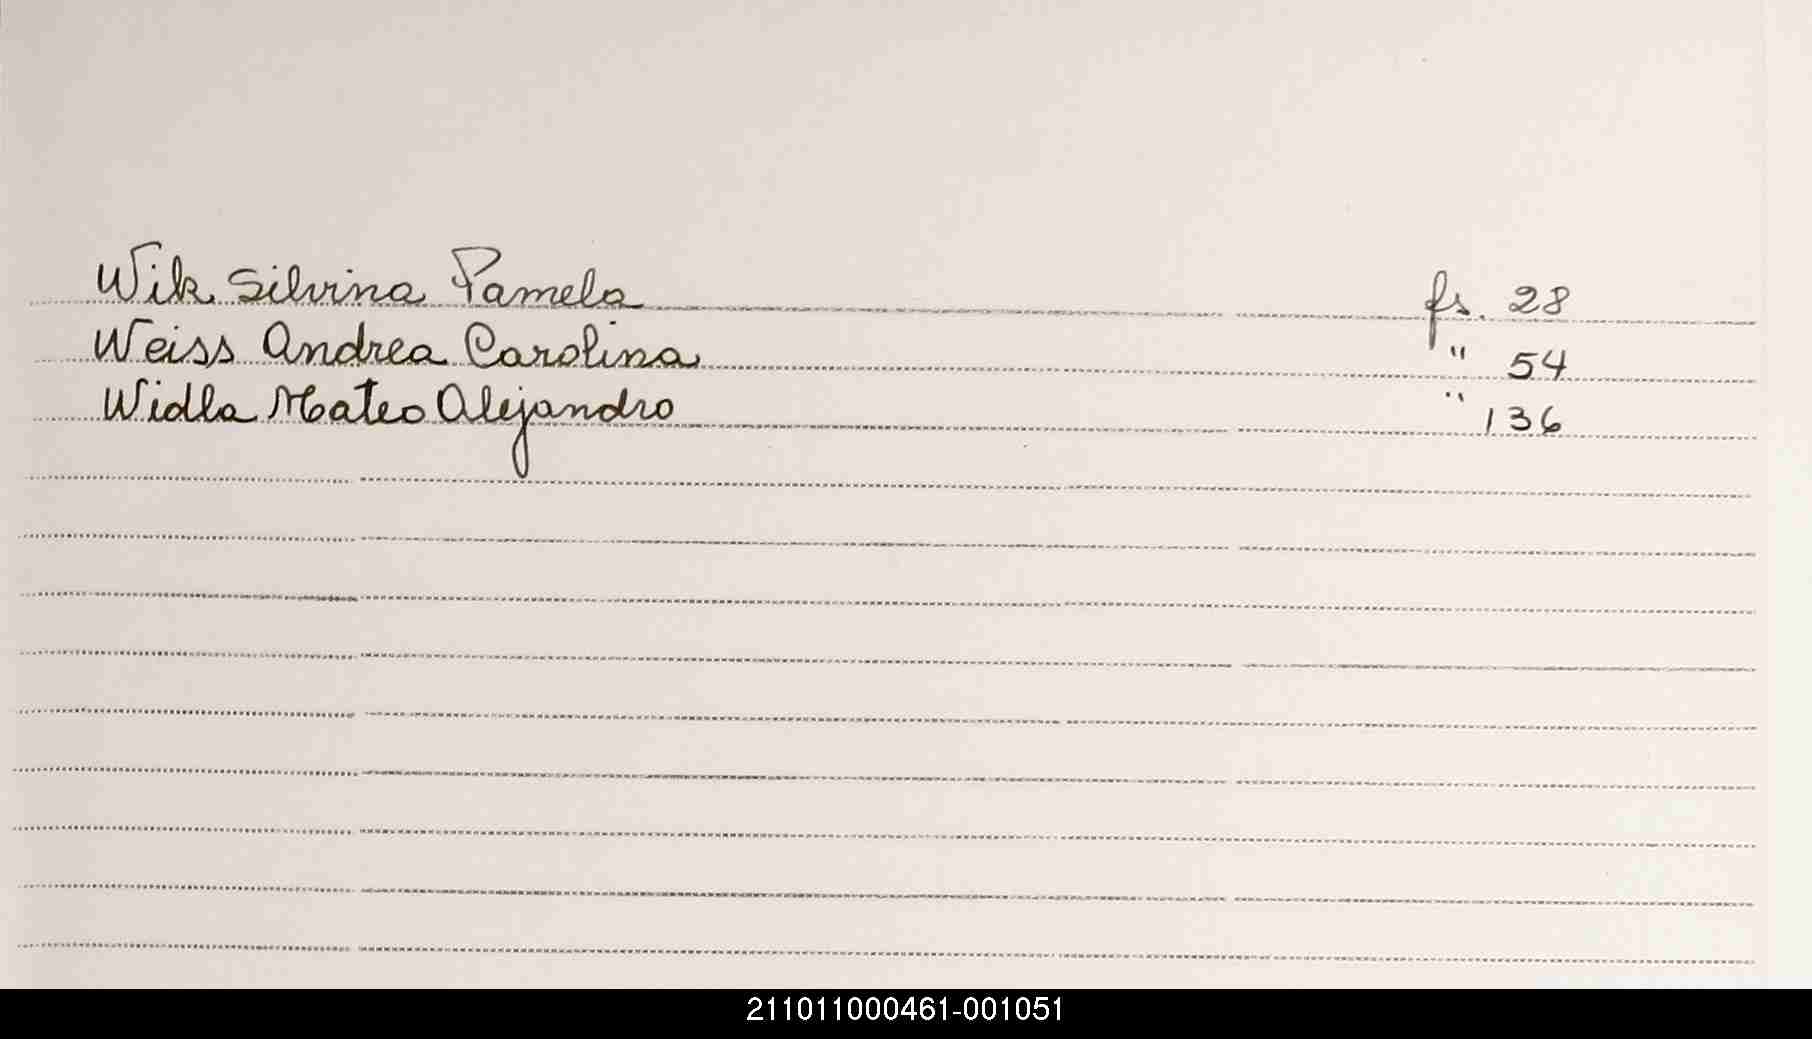 Wik Silvina Pamela fs. 28
Weiss Andrea Carolina " 54
Widla Mateo Alejandro " 136
211011000461-001051